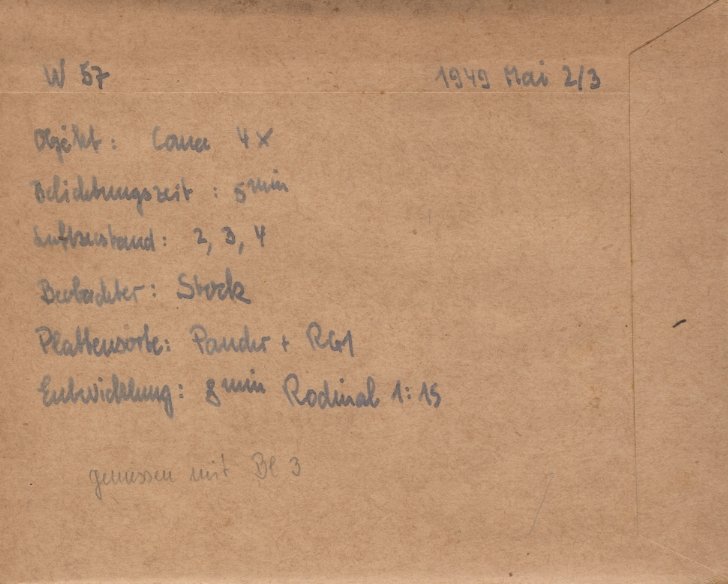 W 57 1949 Mai 2/3
Objekt: Coma 4x
Belichtungszeit: 5 min
Luftzustand: 2, 3, 4
Beobachter: Stock
Plattensorte: Panchr + RG1
Entwicklung: 8 min Rodinal 1:15
gemessen mit Bl 3